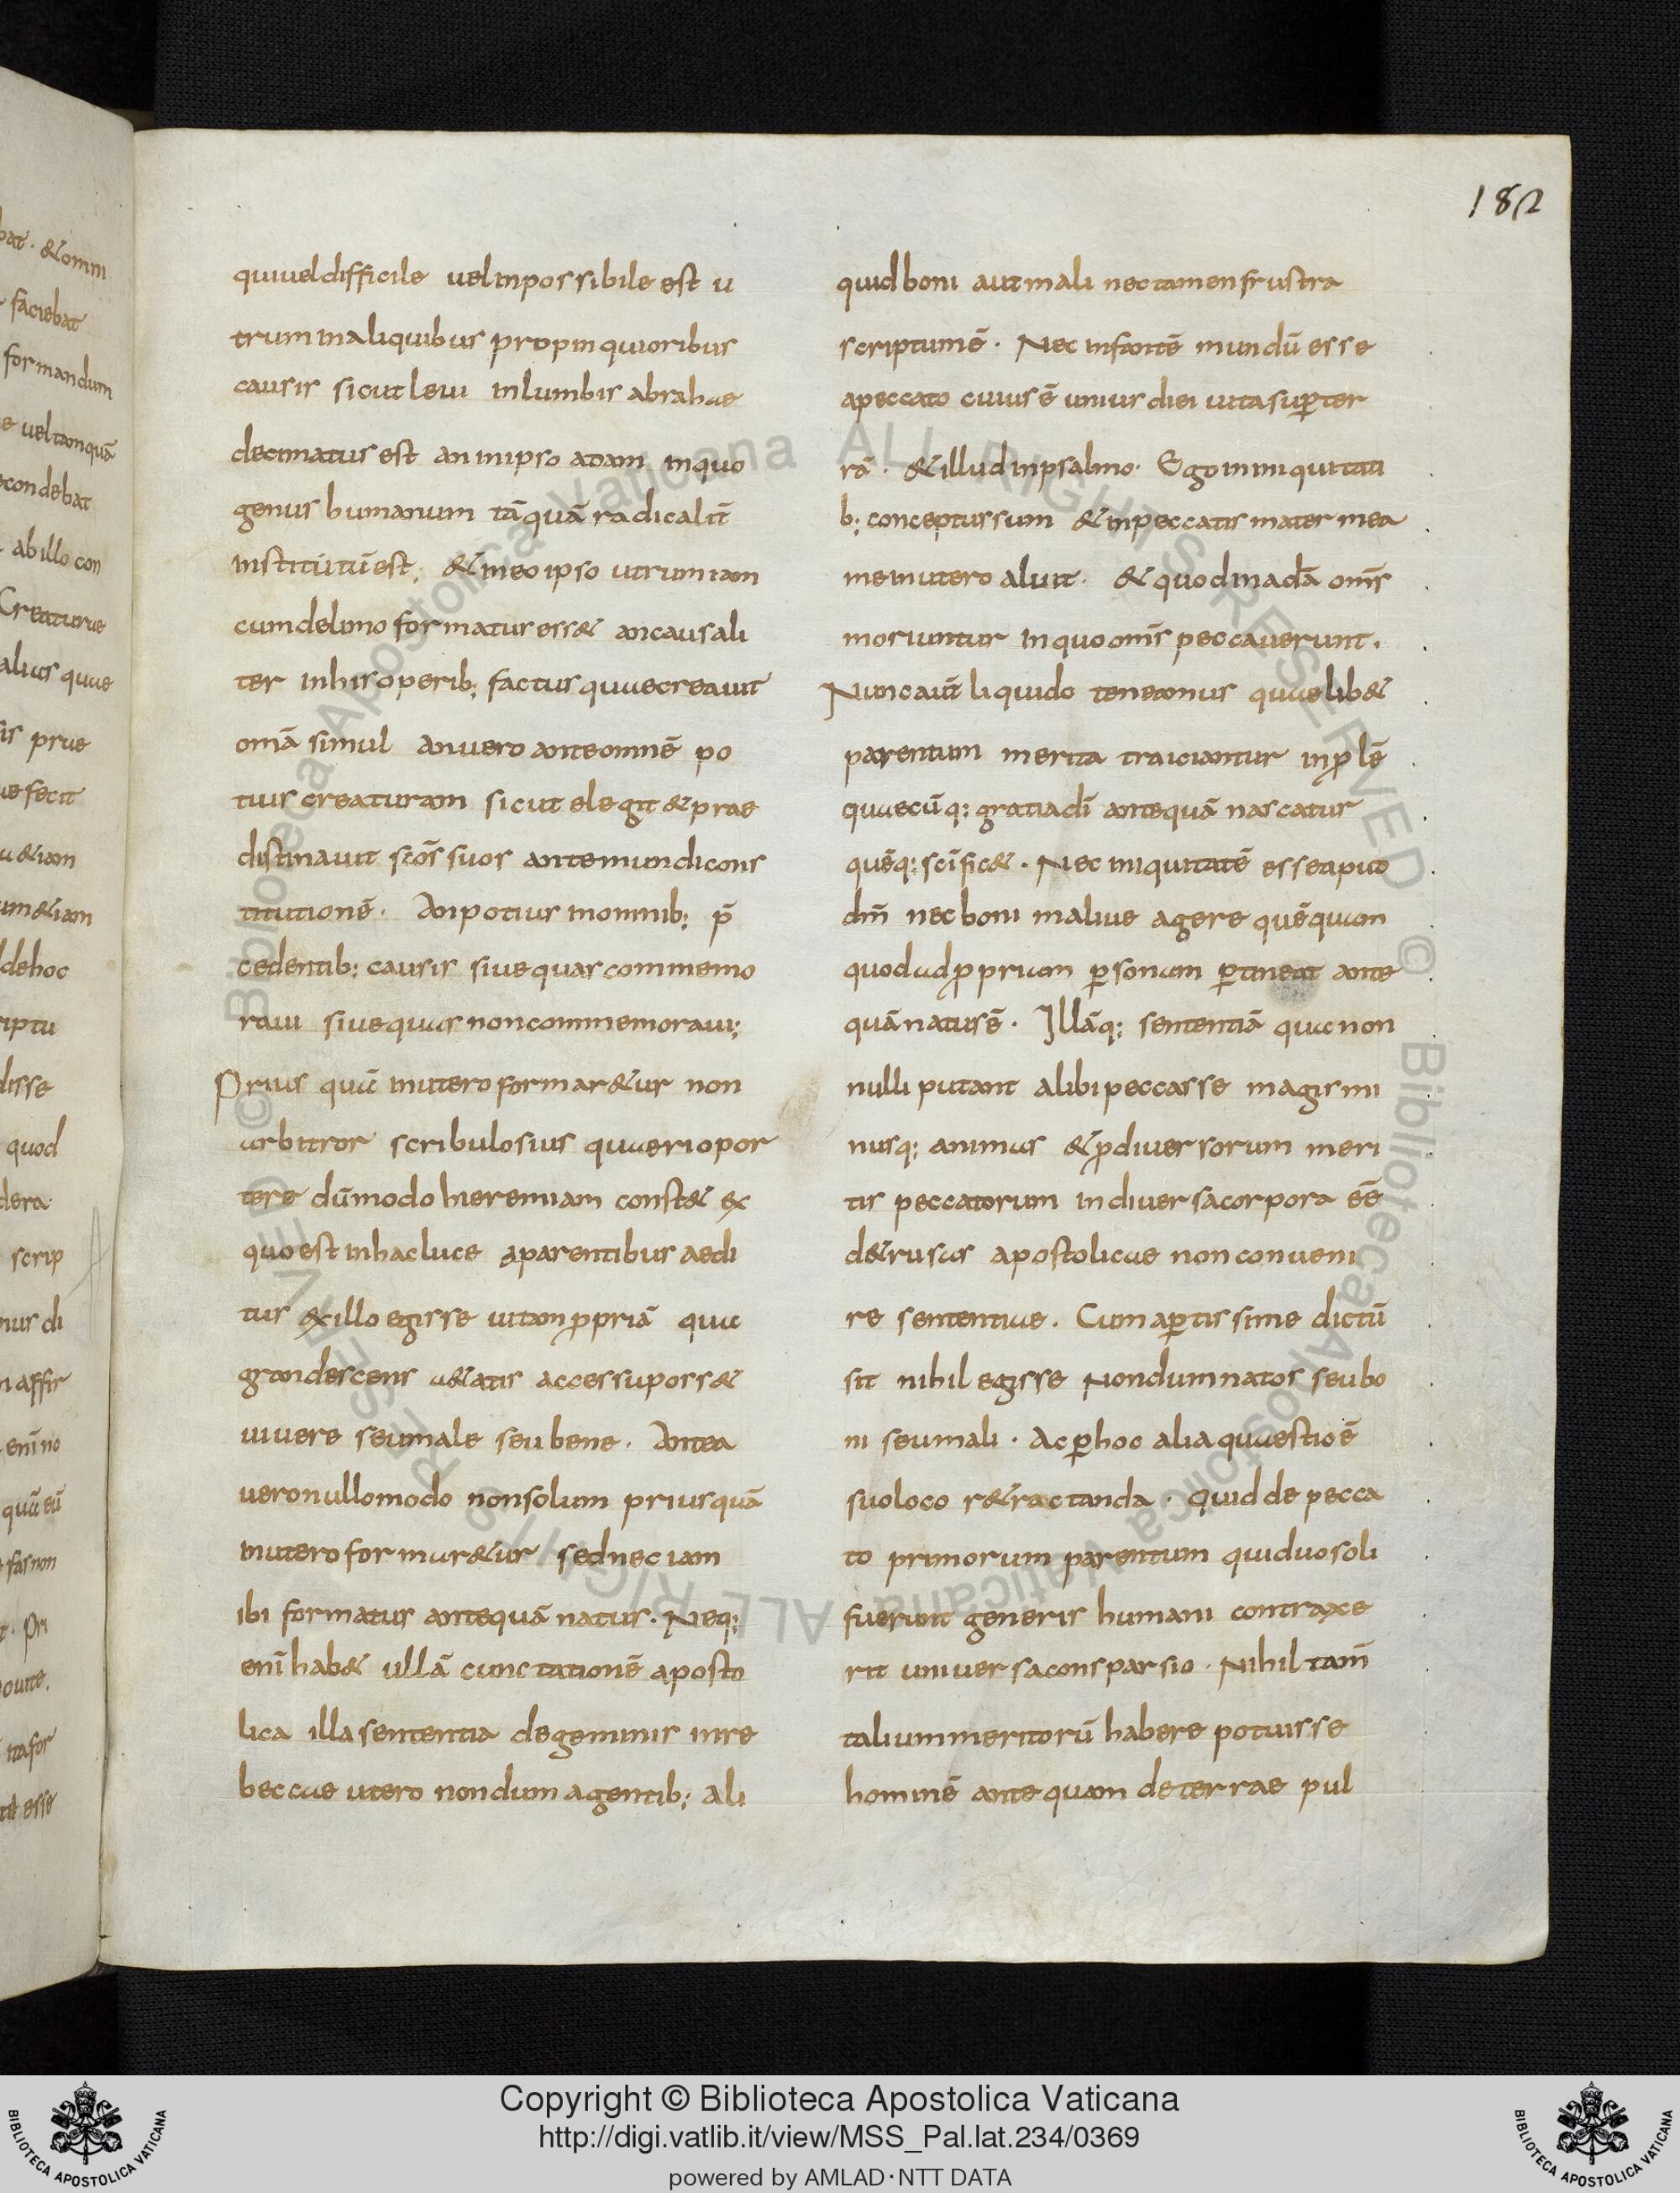 182
quiuel difficile uel inpossibile est u
trum in aliquibus propinquioribus
causis sicut leui in lumbis abrahae
decimatus est an in ipso adam in quo
genus humanum tāquā radicalit̄
institutū est; & in eo ipso utrum iam
cum de limo formatus ess& an causali
ter in his operib; factus quae creauit
om̄a simul an uero ante omnē po
tius creaturam sicut elegit & prae
distinauit sc̄ōs suos ante mundi cons
titutionē. An potius in omnib; p̄
cedentib; causis siue quas commemo
raui siue quas non commemoraui;
Prius quā in utero formar&ur non
arbitror scribulosius quaeri opor
tere dūmodo hieremiam const& ex
quo est in hac luce a parentibus aedi
tus ex illo egisse uitam ꝓpriā qua
grandescens a&atis accessu poss&
uiuere seu male seu bene. Antea
uero nullo modo non solum priusquā
in utero formar&ur sed nec iam
ibi formatus antequā natus. Neq;
enī hab& ullā cunctationē aposto
lica illa sententia de geminis in re
beccae utero nondum agentib; ali
quid boni aut mali nec tamen frustra
scriptum ē. Nec infantē mundū esse
a peccato cuius ē unius diei uita suꝑ ter
rā. & illud in psalmo. Ego in iniquitati
b; conceptus sum & in peccatis mater mea
me in utero aluit. & quod in adā om̄s
moriuntur in quo om̄s peccauerunt.
Nunc aut̄ liquido teneamus quaelib&
parentum merita traiciantur in ꝓlē
quaecūq; gratia dī antequā nascatur
quēq; scīfic&. Nec iniquitatē esse apud
dm̄ nec boni maliue agere quēquam
quod ad ꝓprium ꝑsonam ꝑtineat ante
quā natus ē. Illāq; sententiā qua non
nulli putant alibi peccasse magis mi
nusq; animas & ꝓ diuersorum meri
tis peccatorum in diuersa corpora ēē
d&rusas apostolicae non conueni
re sententiae. Cum aꝑtissime dictū
sit nihil egisse nondum natos seu bo
ni seu mali. Ac ꝑ hoc alia quaestio ē
suo loco r&ractanda. quid de pecca
to primorum parentum qui duo soli
fuerunt generis humani contraxe
rit uniuersa consparsio. Nihil tam̄
talium meritorū habere potuisse
hominē antequam de terrae pul
Copyright © Biblioteca Apostolica Vaticana
http://digi.vatlib.it/view/MSS_Pal.lat.234/0369
powered by AMLAD·NTT DATA
BIBLIOTECA APOSTOLICA VATICANA
BIBLIOTECA APOSTOLICA VATICANA